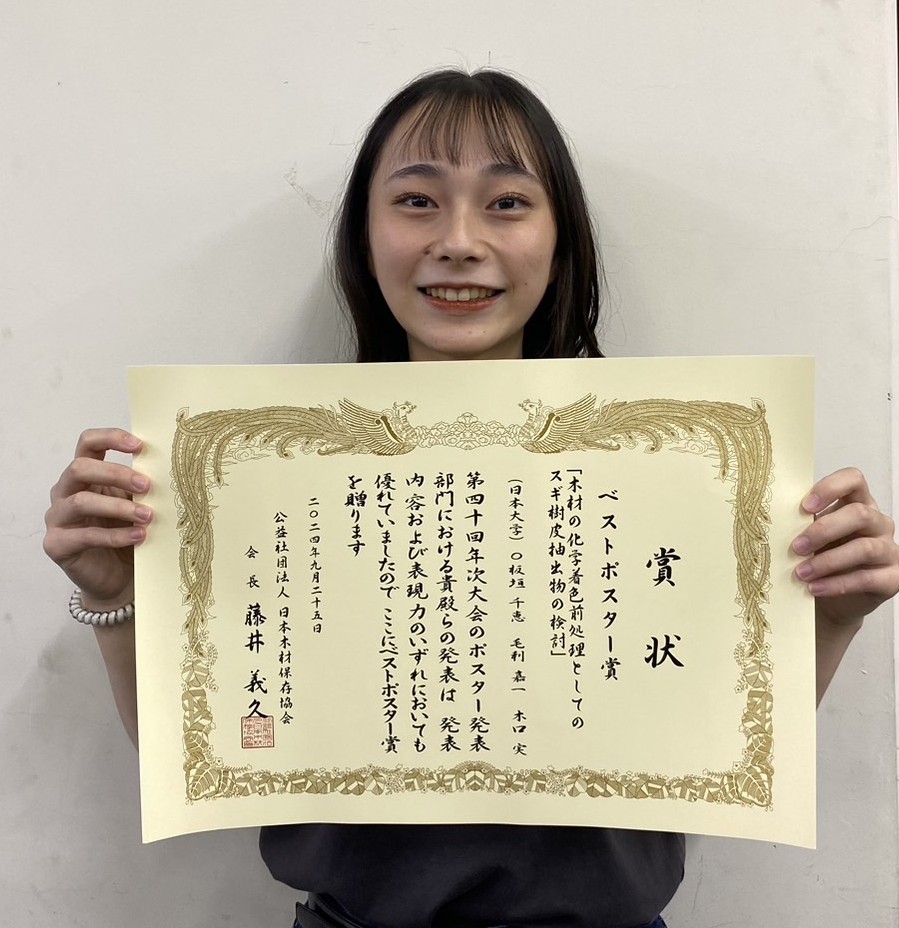 賞状
ベストポスター賞
「木材の化学着色前処理としての
スギ樹皮抽出物の検討」
(日本大学) ○板垣 千恵 毛利 嘉一 木口 実
第四十回年次大会のポスター発表
部門における貴殿らの発表は 発表
内容および表現力のいずれにおいても
優れていましたので ここにベストポスター賞
を贈ります
二〇二四年九月二十五日
公益社団法人 日本木材保存協会
会長 藤井 義久